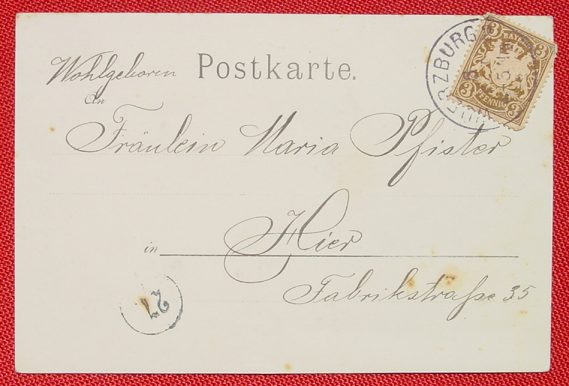 Wohlgeboren Postkarte.
An
Fräulein Maria Pfister
in Hier
Fabrikstraße 35
RZBURG
BAYERN
3 3
3 PFENNIG 3
27